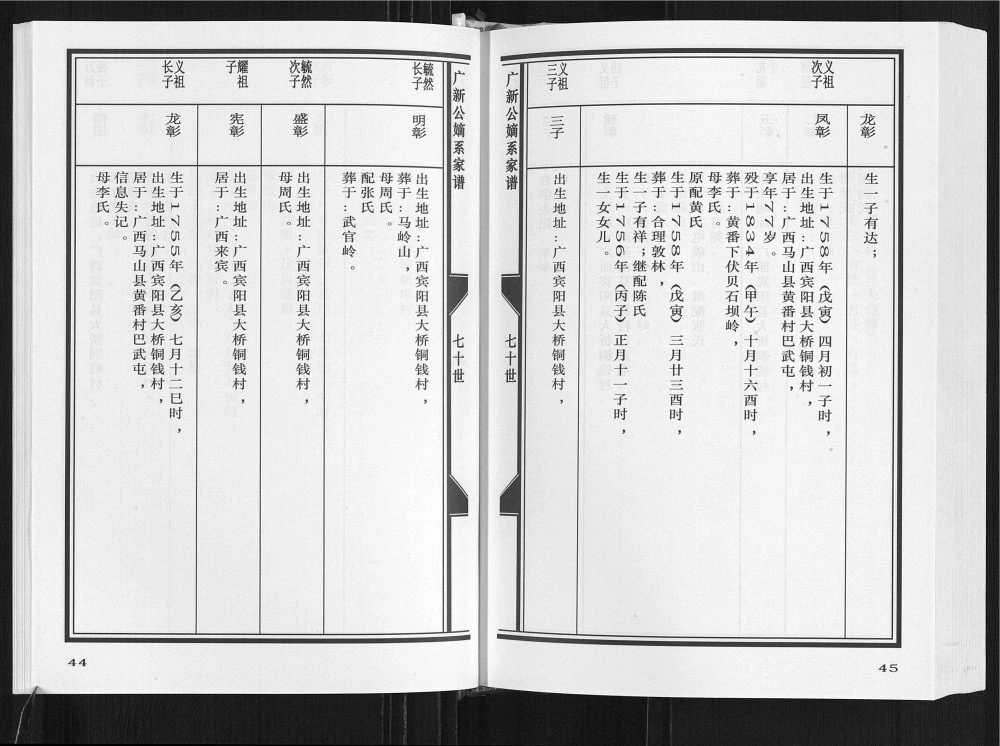 广新公嫡系家谱
七十世
毓然
长子
明彰
出生地址:广西宾阳县大桥铜钱村，
葬于:马岭山，
母周氏。
配张氏
葬于:武官岭。
毓然
次子
盛彰
出生地址:广西宾阳县大桥铜钱村，
母周氏。
耀祖
子
宪彰
出生地址:广西宾阳县大桥铜钱村，
居于:广西来宾。
义祖
长子
龙彰
生于1755年（乙亥）七月十二巳时，
出生地址:广西宾阳县大桥铜钱村，
居于:广西马山县黄番村巴武屯，
信息失记。
母李氏。
44
龙彰
生一子有达；
义祖
次子
凤彰
生于1758年（戊寅）四月初一子时，
出生地址:广西宾阳县大桥铜钱村，
居于:广西马山县黄番村巴武屯，
享年77岁。
殁于1834年（甲午）十月十六酉时，
葬于:黄番下伏贝石坝岭，
母李氏。
原配黄氏
生于1758年（戊寅）三月廿三酉时，
葬于:合理敦林，
生一子有祥；继配陈氏
生于1756年（丙子）正月十一子时，
生一女女儿。
义祖
三子
三子
出生地址:广西宾阳县大桥铜钱村，
广新公嫡系家谱
七十世
45